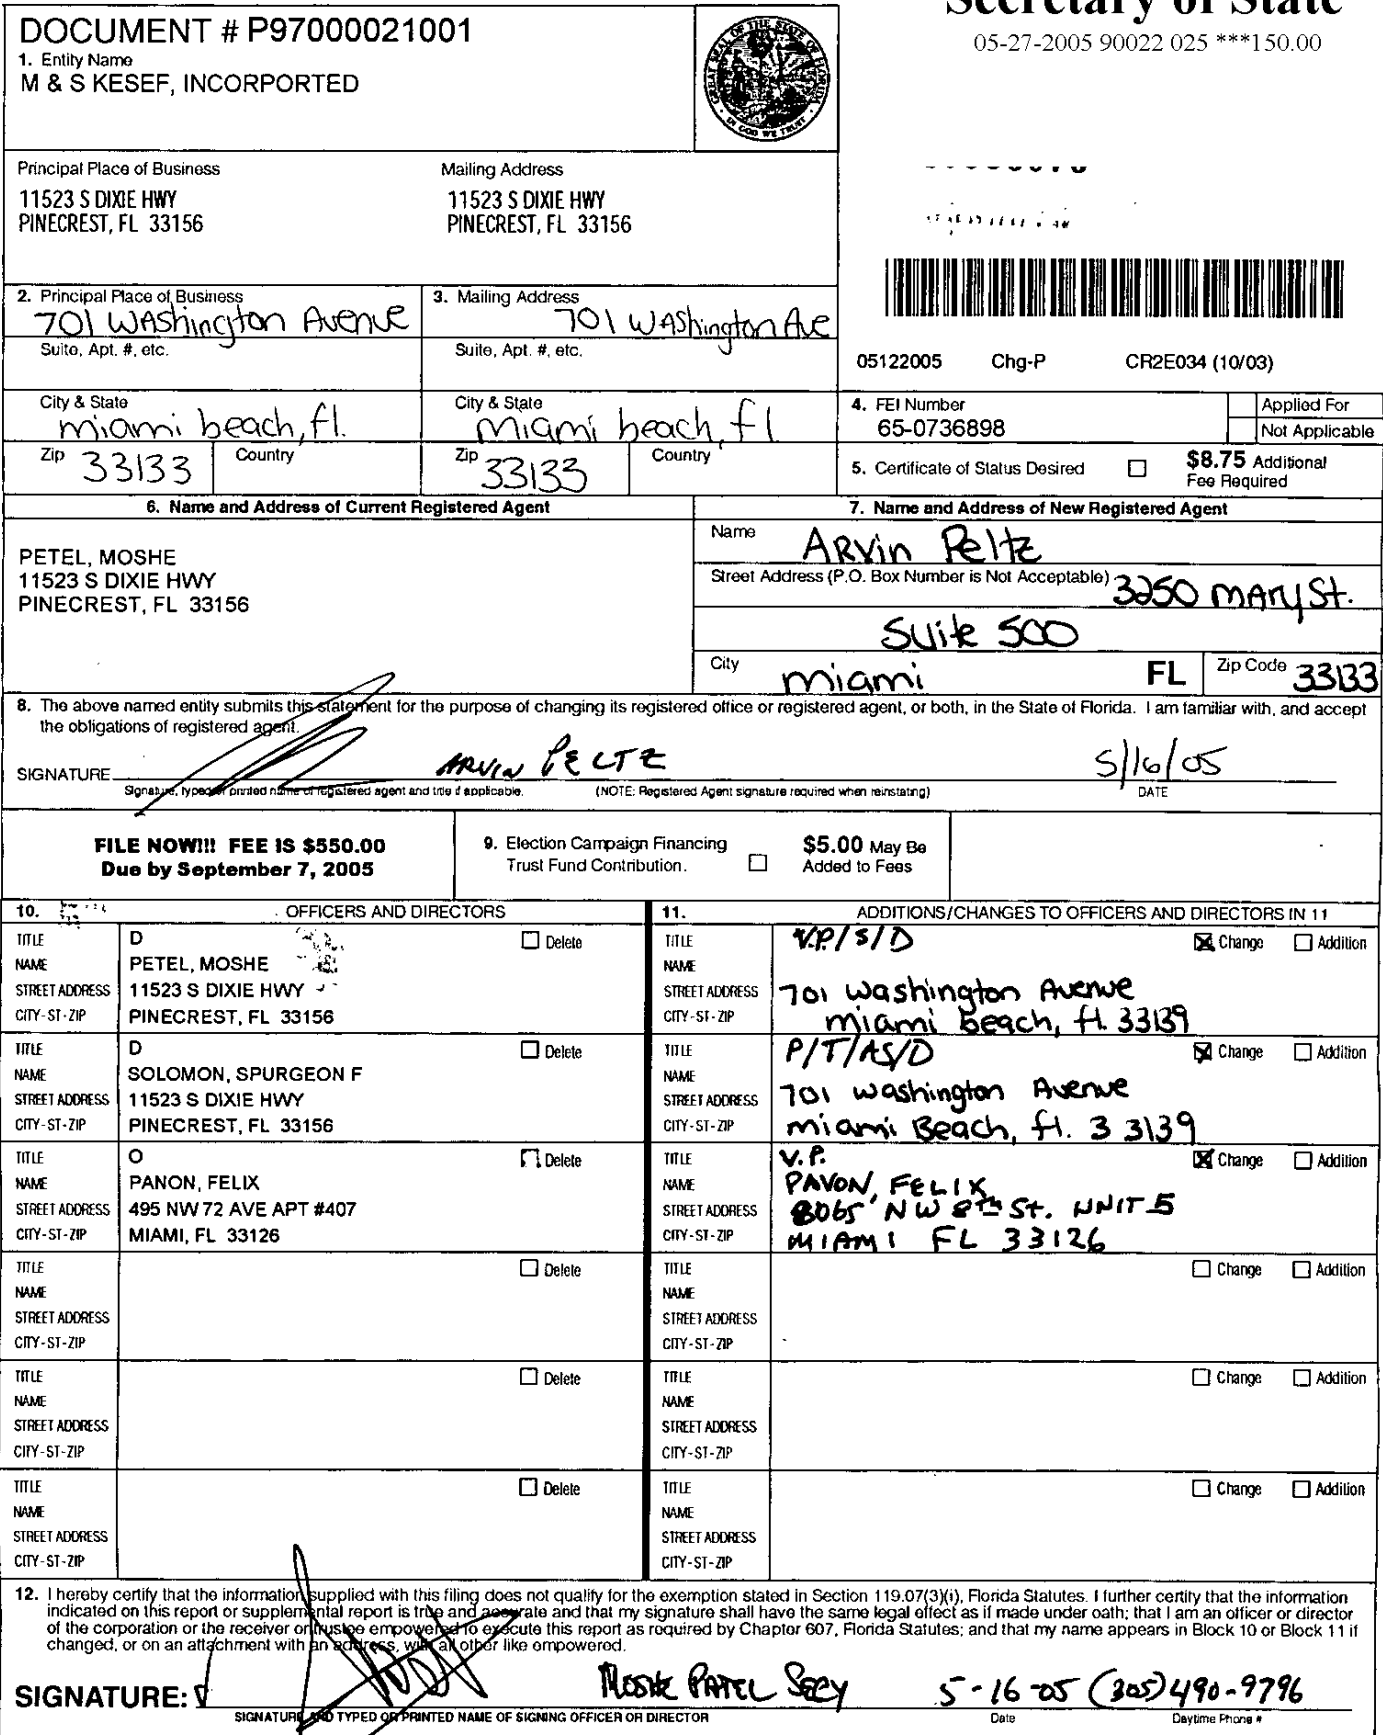 Secretary of State
05-27-2005 90022 025 ***150.00
DOCUMENT # P97000021001
1. Entity Name
M & S KESEF, INCORPORTED
GREAT SEAL OF THE STATE OF FLORIDA
IN GOD WE TRUST
Principal Place of Business
11523 S DIXIE HWY
PINECREST, FL 33156
Mailing Address
11523 S DIXIE HWY
PINECREST, FL 33156
2. Principal Place of Business
701 Washington Avenue
Suite, Apt. #, etc.
City & State
miami beach, fl.
Zip 33133 Country
3. Mailing Address
701 Washington Ave
Suite, Apt. #, etc.
City & State
Miami beach, fl
Zip 33133 Country
05122005 Chg-P CR2E034 (10/03)
4. FEI Number
65-0736898
Applied For
Not Applicable
5. Certificate of Status Desired
$8.75 Additional
Fee Required
6. Name and Address of Current Registered Agent
PETEL, MOSHE
11523 S DIXIE HWY
PINECREST, FL 33156
7. Name and Address of New Registered Agent
Name ARVin Peltz
Street Address (P.O. Box Number is Not Acceptable) 3250 MARY St.
Suite 500
City miami FL Zip Code 33133
8. The above named entity submits this statement for the purpose of changing its registered office or registered agent, or both, in the State of Florida. I am familiar with, and accept
the obligations of registered agent.
SIGNATURE ARVIN PELTZ 5/16/05
Signature, typed or printed name of registered agent and title if applicable. (NOTE: Registered Agent signature required when reinstating) DATE
FILE NOW!!! FEE IS $550.00
Due by September 7, 2005
9. Election Campaign Financing
Trust Fund Contribution.
$5.00 May Be
Added to Fees
10. OFFICERS AND DIRECTORS
TITLE D Delete
NAME PETEL, MOSHE
STREET ADDRESS 11523 S DIXIE HWY
CITY-ST-ZIP PINECREST, FL 33156
TITLE D Delete
NAME SOLOMON, SPURGEON F
STREET ADDRESS 11523 S DIXIE HWY
CITY-ST-ZIP PINECREST, FL 33156
TITLE O Delete
NAME PANON, FELIX
STREET ADDRESS 495 NW 72 AVE APT #407
CITY-ST-ZIP MIAMI, FL 33126
TITLE Delete
NAME
STREET ADDRESS
CITY-ST-ZIP
TITLE Delete
NAME
STREET ADDRESS
CITY-ST-ZIP
TITLE Delete
NAME
STREET ADDRESS
CITY-ST-ZIP
11. ADDITIONS/CHANGES TO OFFICERS AND DIRECTORS IN 11
TITLE V.P/S/D Change Addition
NAME
STREET ADDRESS 701 Washington Avenue
CITY-ST-ZIP miami beach, fl. 33139
TITLE P/T/AS/D Change Addition
NAME
STREET ADDRESS 701 Washington Avenue
CITY-ST-ZIP miami Beach, fl. 33139
TITLE V.P. Change Addition
NAME PAVON, FELIX
STREET ADDRESS 8065 NW 8th St. UNIT 5
CITY-ST-ZIP MIAMI FL 33126
TITLE Change Addition
NAME
STREET ADDRESS
CITY-ST-ZIP
TITLE Change Addition
NAME
STREET ADDRESS
CITY-ST-ZIP
TITLE Change Addition
NAME
STREET ADDRESS
CITY-ST-ZIP
12. I hereby certify that the information supplied with this filing does not qualify for the exemption stated in Section 119.07(3)(i), Florida Statutes. I further certify that the information
indicated on this report or supplemental report is true and accurate and that my signature shall have the same legal effect as if made under oath; that I am an officer or director
of the corporation or the receiver or trustee empowered to execute this report as required by Chapter 607, Florida Statutes; and that my name appears in Block 10 or Block 11 if
changed, or on an attachment with an address, with all other like empowered.
SIGNATURE: MOSHE PATEL SECY 5-16-05 (305) 490-9796
SIGNATURE AND TYPED OR PRINTED NAME OF SIGNING OFFICER OR DIRECTOR Date Daytime Phone #